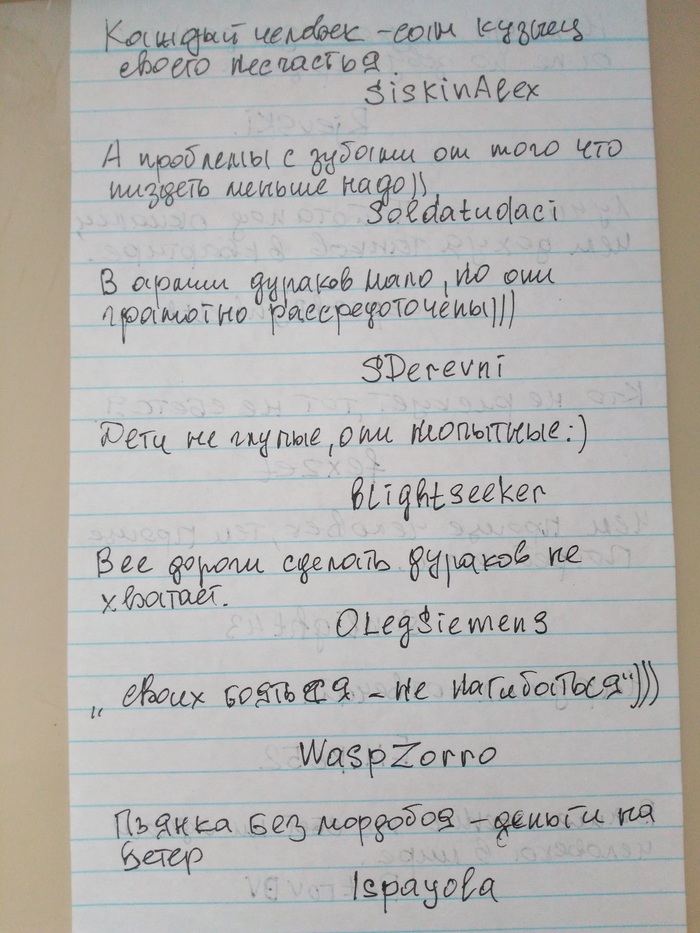 Каждый человек - сам кузнец
своего несчастья.
SiskinAlex
А проблемы с зубами от того что
пиздеть меньше надо)),
Soldatudaci
В армии дураков мало, но они
грамотно рассредоточены)))
SDerevni
Дети не глупые, они неопытные:)
BLightseeker
Все дороги сделать дураков не
хватает.
OLegSiemens
„ своих бояться - не нагибаться")))
WaspZorro
Пьянка без мордобоя - деньги на
ветер
Ispayola